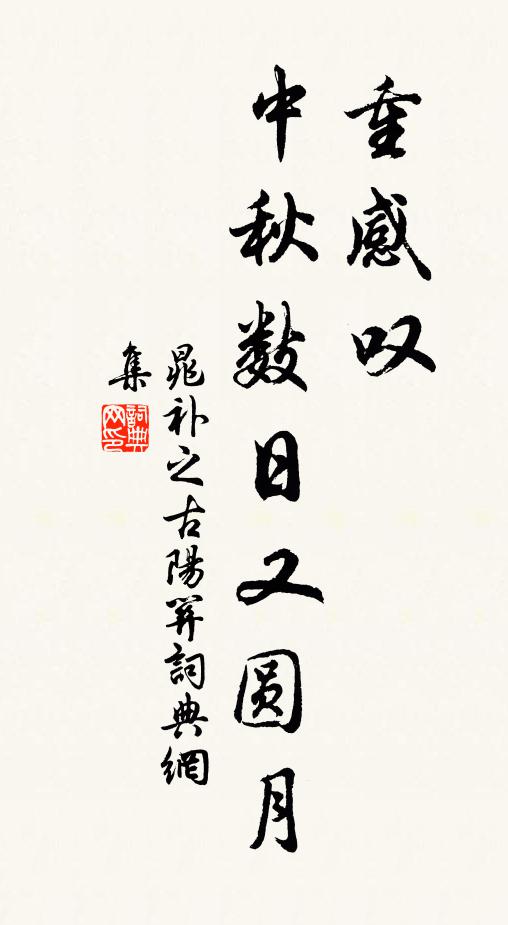 重感叹
中秋数日又圆月
晁补之古陽关詞典網
集
詞典网印